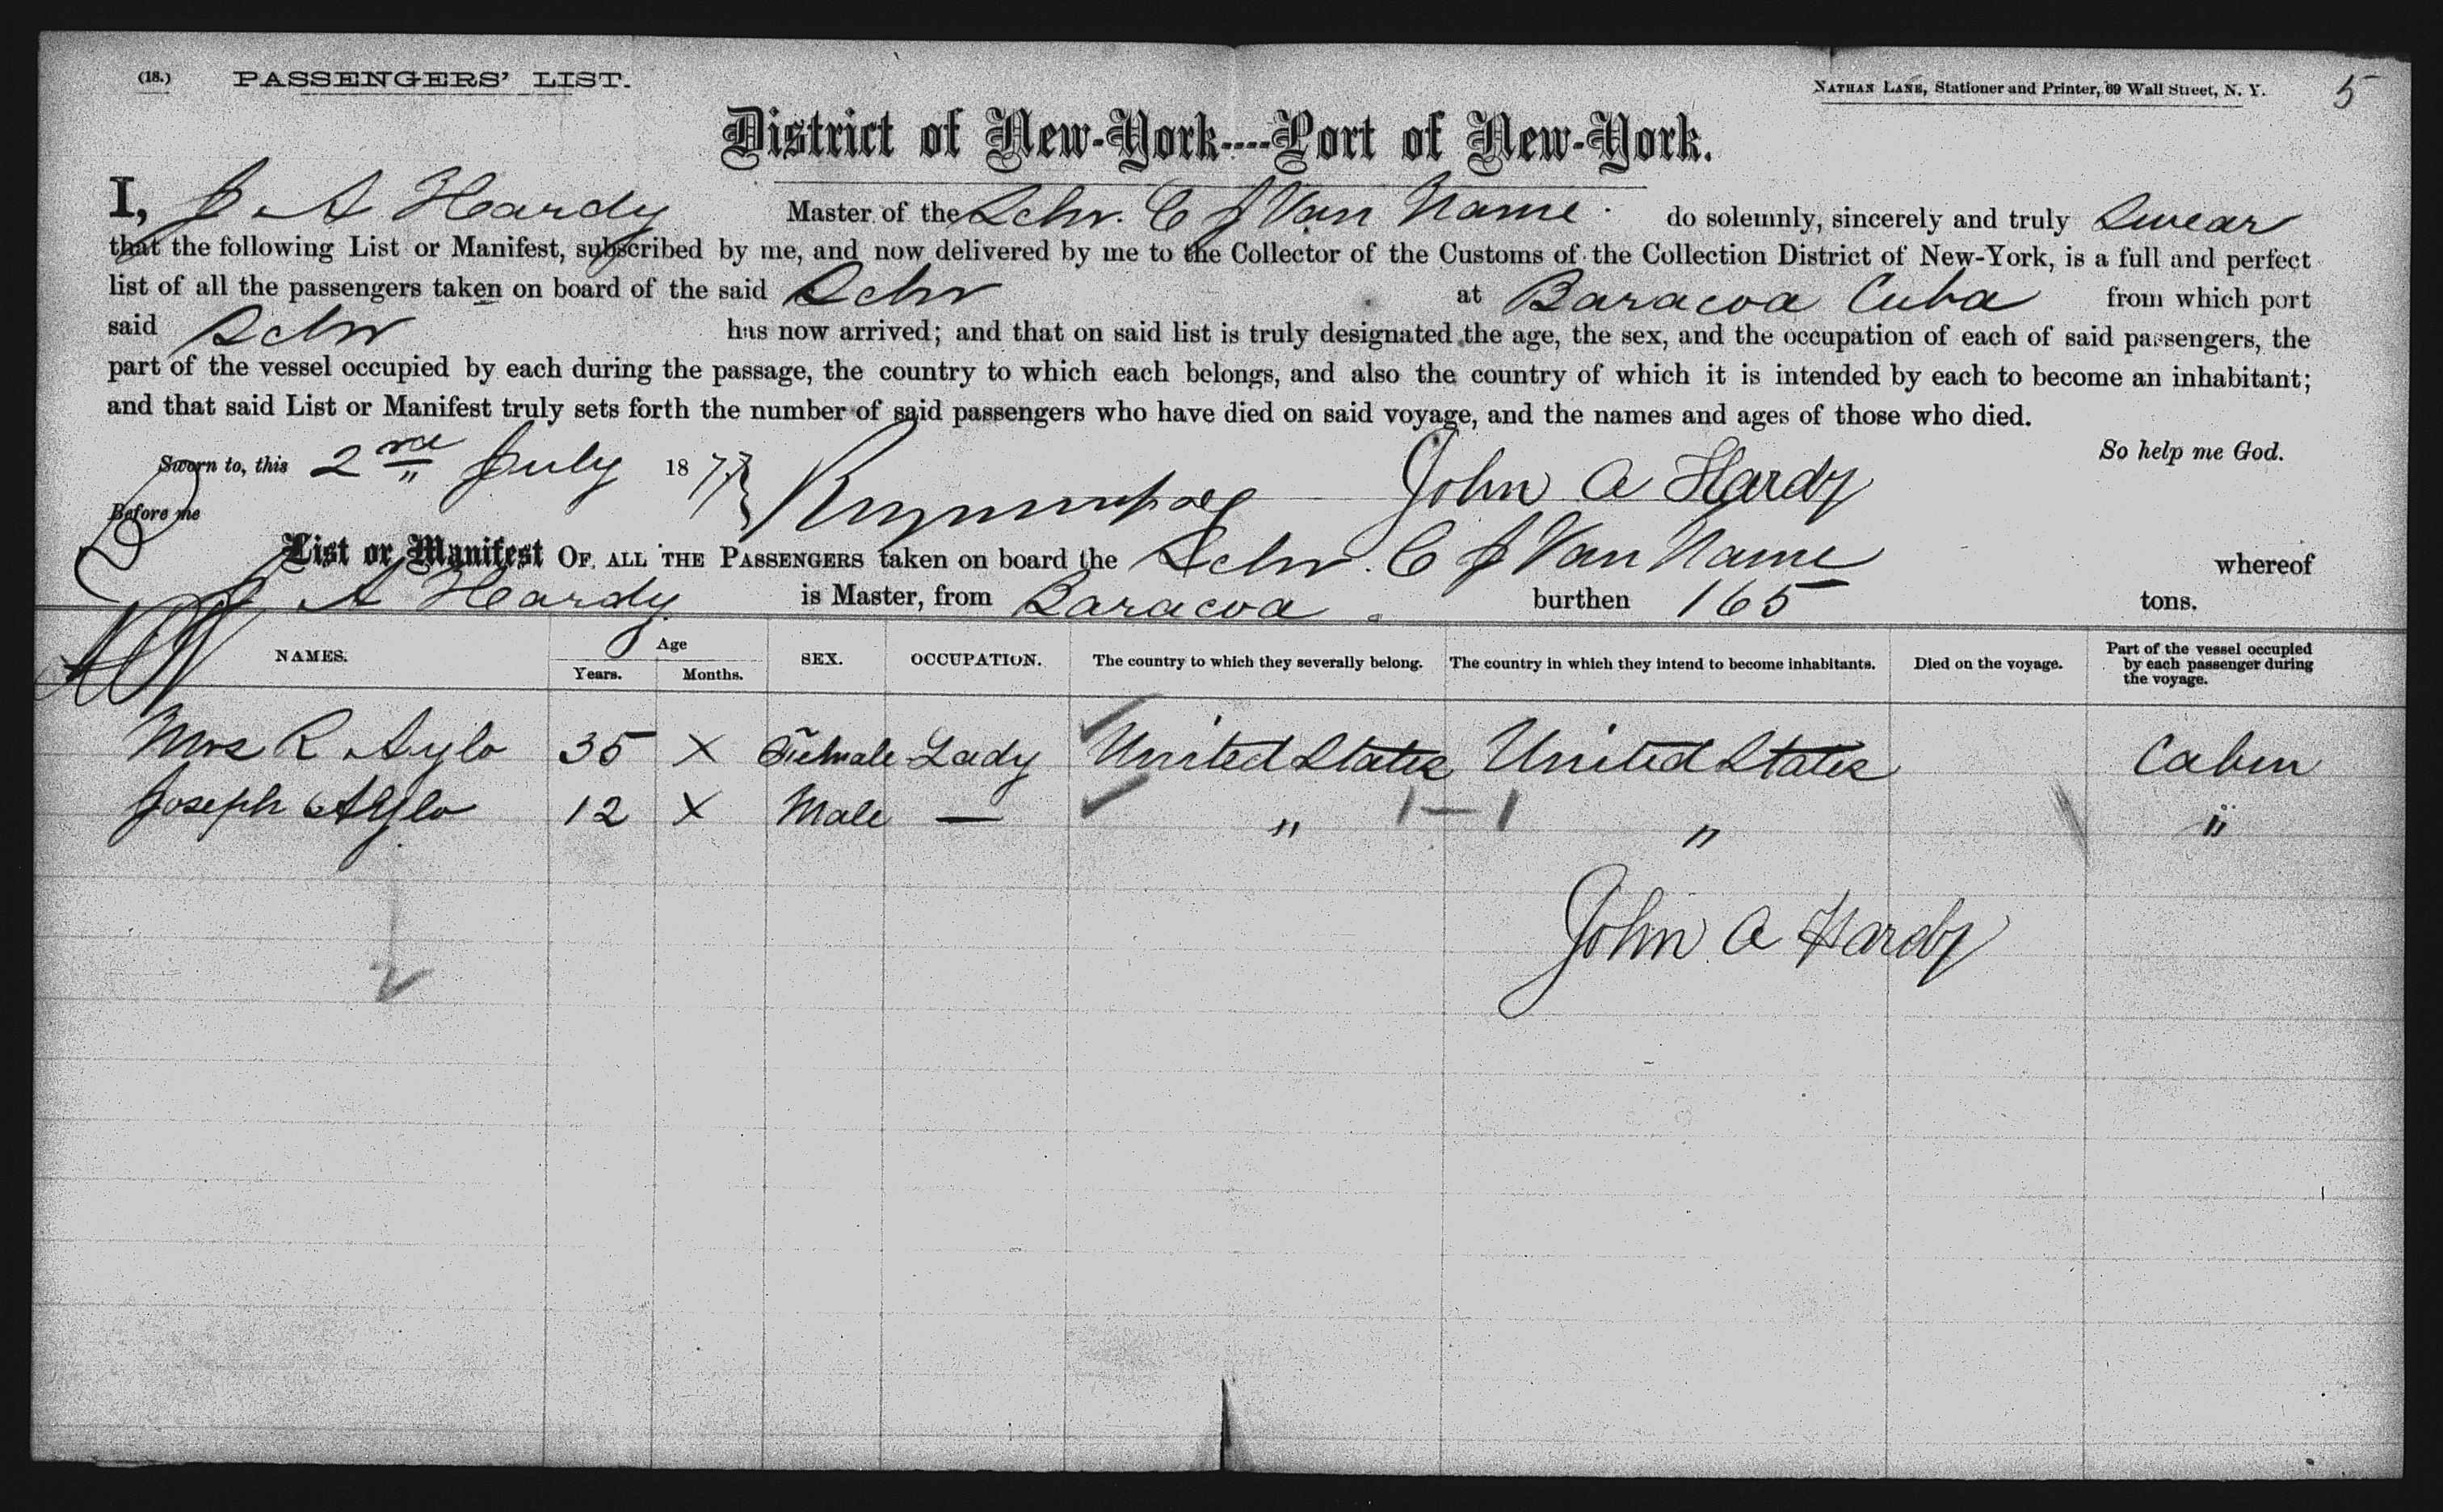 (18.) PASSENGERS' LIST. NATHAN LANE, Stationer and Printer, 69 Wall Street, N. Y. 5
District of New-York----Port of New-York.
I, J A Hardy Master of the Schr. C J Van Name. do solemnly, sincerely and truly Swear
that the following List or Manifest, subscribed by me, and now delivered by me to the Collector of the Customs of the Collection District of New-York, is a full and perfect
list of all the passengers taken on board of the said Schr at Baracoa Cuba from which port
said Schr has now arrived; and that on said list is truly designated the age, the sex, and the occupation of each of said passengers, the
part of the vessel occupied by each during the passage, the country to which each belongs, and also the country of which it is intended by each to become an inhabitant;
and that said List or Manifest truly sets forth the number of said passengers who have died on said voyage, and the names and ages of those who died.
So help me God.
Sworn to, this 2nd July 1877 John A Hardy
Before me
List or Manifest OF ALL THE PASSENGERS taken on board the Schr. C J Van Name whereof
J A Hardy is Master, from Baracoa. burthen 165 tons.
NAMES. Age Years. Months. SEX. OCCUPATION. The country to which they severally belong. The country in which they intend to become inhabitants. Died on the voyage. Part of the vessel occupied by each passenger during the voyage.
Mrs R Aylo 35 X Female Lady United States United States Cabin
Joseph Aylo 12 X Male — " 1—1 " "
John A Hardy
2